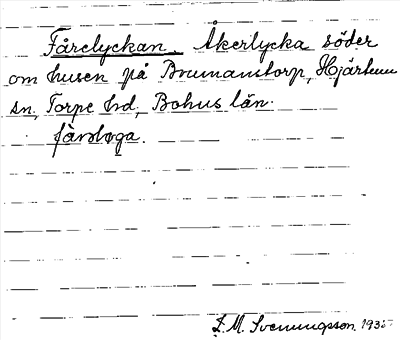 Fårelyckan. Åkerlycka söder
om husen på Brumanstorp, Hjärtum
sn, Torpe hd, Bohus län.
fårstoga.
I. M. Svenungsson.